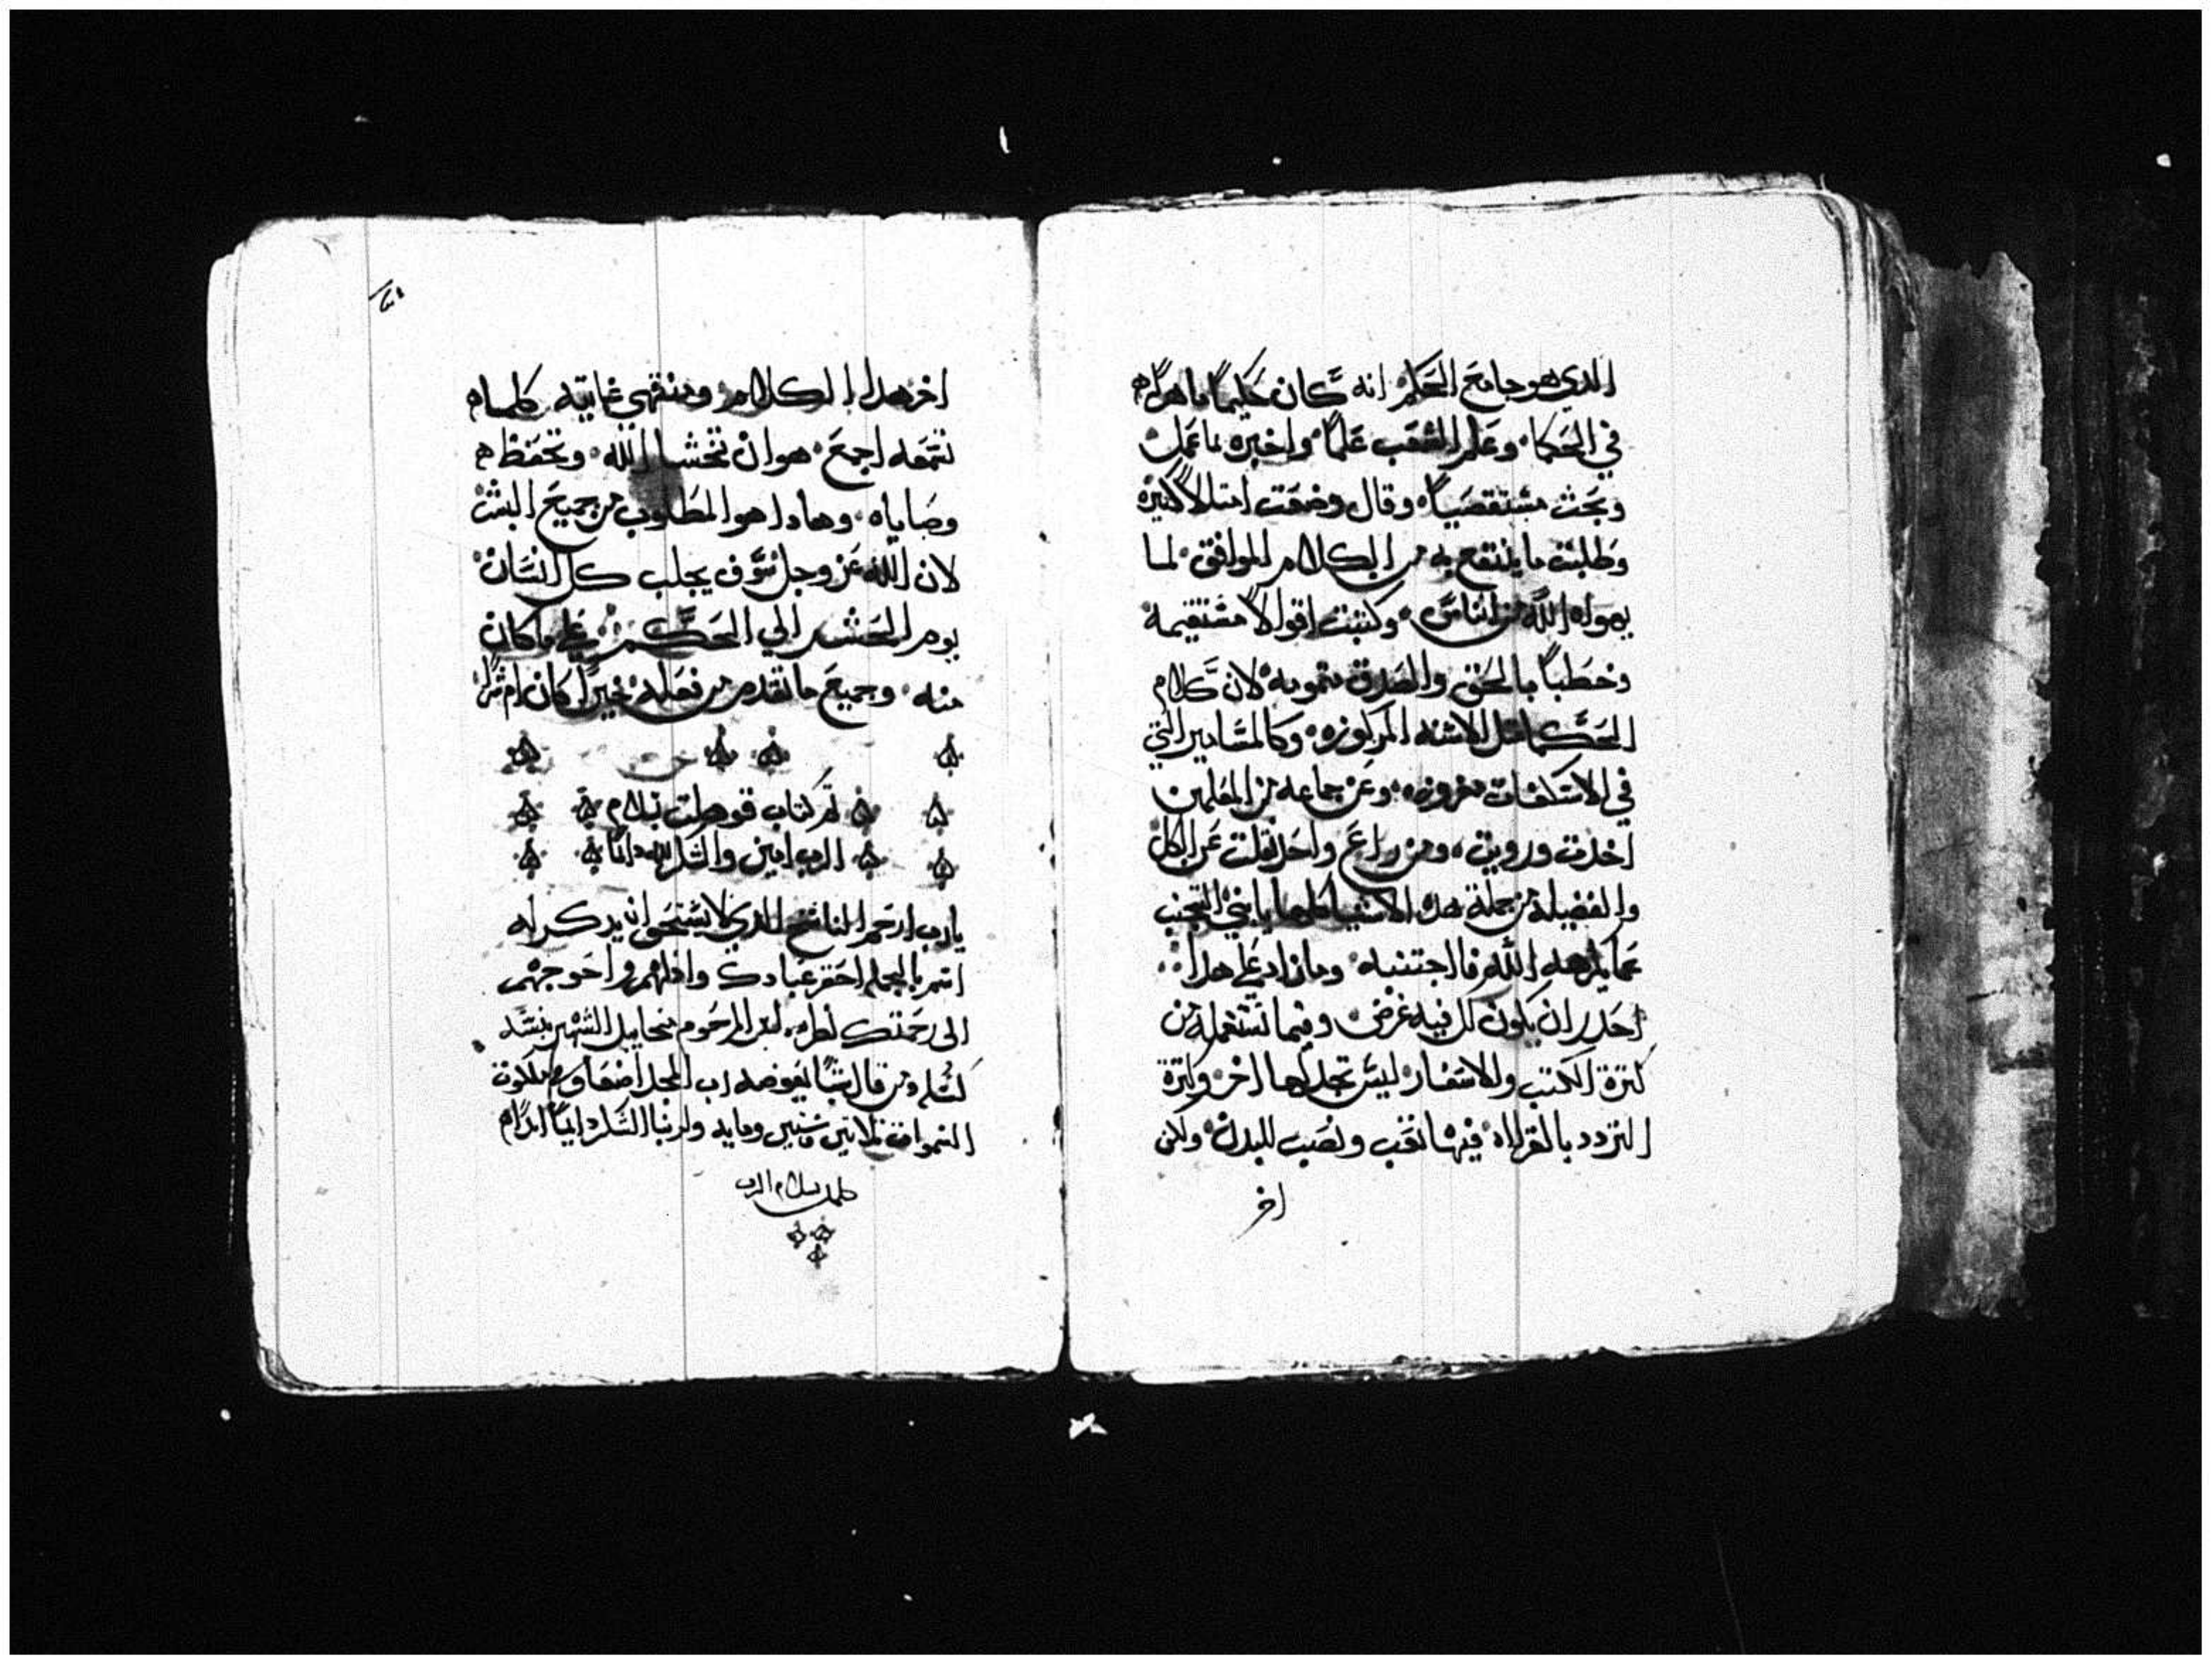 الدي هو جامع الحكم انه كان حكيماً ماهراً
في الحكما وعلم الشعب علماً واخبره بما عمل
وبحث مستقصياً وقال وضعت امتلا كتيرة
وطلبت ما ينتفع به من الكلام الموافق لما
يهواه الله من الناس وكتبت اقوالاً مستقيمه
وخطباً بالحق والصدق لان كلام
الحكما متل الاسنه المركوزه وكالمسامير التي
في مغروزه وعن جماعه من المعلمين
اخدت ورويت ومن راع واحد نقلت عن الكل
والفضيلة من جملة هده الاشيا كلها يا بني التجنب
عما يكرهه الله فااجتنبه وما زاد علي هدا
احدر ان يكون لك فيه غرض وفيما تستعمله من
كترة الكتب والاسفار ليس تجد لها اخر وكترة
التردد بالقرااه فيها تعب ونصب للبدن ولكن
اخر
اخر هدا الكلام ومنتهي غايته كلما
تسمعه اجمع هو ان تخشا الله وتحفظ
وصاياه وهادا هو المطلوب من جميع البشر
لان الله عز وجل سوف يجلب كل انسان
يوم الحشر الي الحكم علي ما كان
منه وجميع ما تقدم من فعله خيراً كان ام شراً
تم كتاب قوهلت بسلام
الرب امين والشكر لله دائماً
يارب ارحم الناسخ الدي لا يستحق ان يدكر له
اسم بالجمله احقر عبادك وادلهم واحوجهم
الى رحمتك ابن المرحوم مخاييل الشهير
ومن قال شياً يعوضه رب المجد اضعاف ملكوت
السموات تلاتين وستين ومايه ولربنا الشكر دايماً ابداً
كمل بسلام الرب